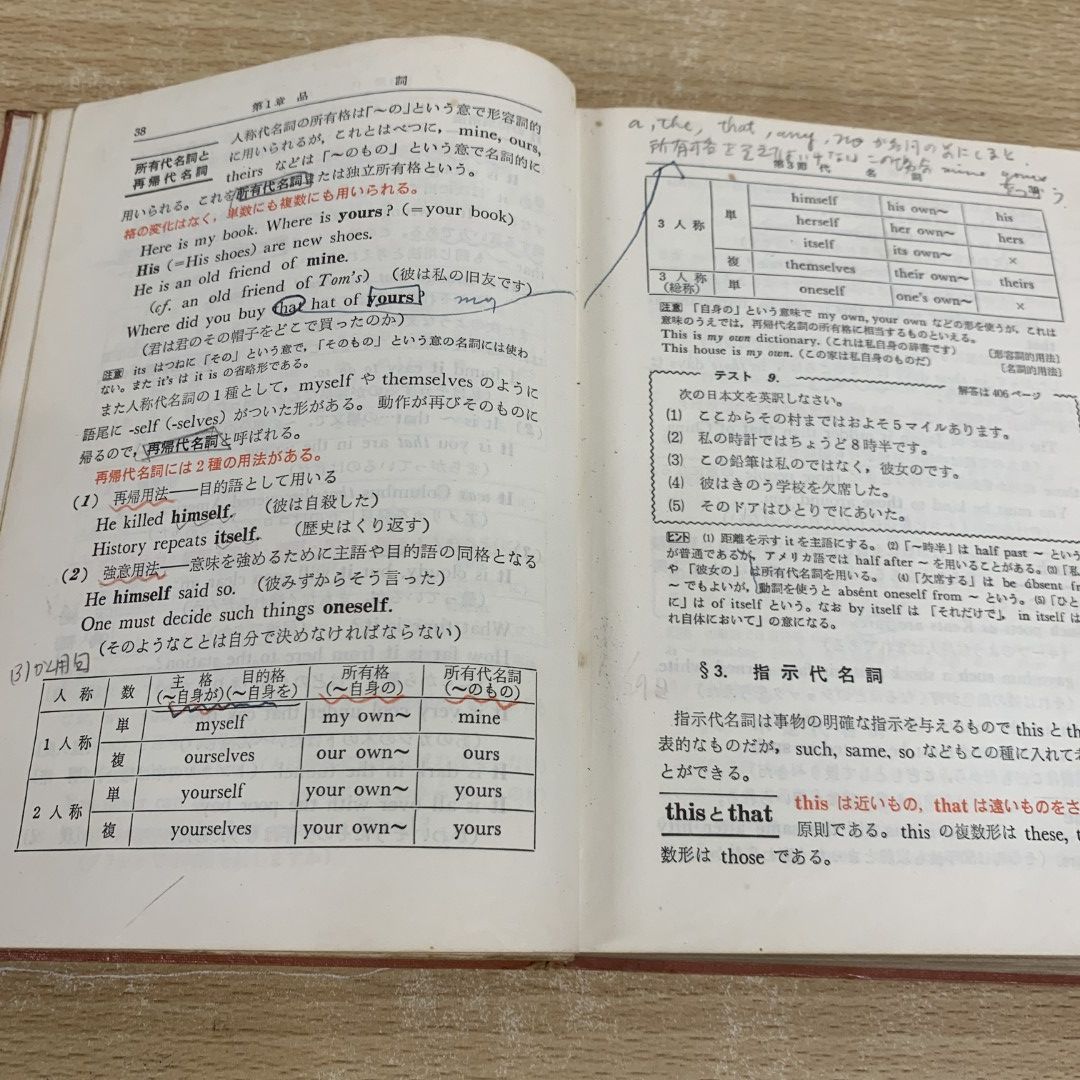 38
第1章 品 詞
所有代名詞と
再帰代名詞
人称代名詞の所有格は「〜の」という意で形容詞的
に用いられるが，これとはべつに，mine, ours,
theirs などは「〜のもの」という意で名詞的に
用いられる。これを所有代名詞または独立所有格という。
格の変化はなく，単数にも複数にも用いられる。
Here is my book. Where is yours? (=your book)
His (=His shoes) are new shoes.
He is an old friend of mine.
(cf. an old friend of Tom's) (彼は私の旧友です)
Where did you buy that hat of yours?
my
(君は君のその帽子をどこで買ったのか)
注意 its はつねに「その」という意で，「そのもの」という意の名詞には使わ
ない。また it's は it is の省略形である。
また人称代名詞の1種として，myself や themselves のように
語尾に -self (-selves) がついた形がある。動作が再びそのものに
帰るので，再帰代名詞と呼ばれる。
再帰代名詞には2種の用法がある。
(1) 再帰用法――目的語として用いる
He killed himself. (彼は自殺した)
History repeats itself. (歴史はくり返す)
(2) 強意用法――意味を強めるために主語や目的語の同格となる
He himself said so. (彼みずからそう言った)
One must decide such things oneself.
(そのようなことは自分で決めなければならない)
(3)
人称 数 主格 目的格 所有格 所有代名詞
(〜自身が)(〜自身を) (〜自身の) (〜のもの)
1人称 単 myself my own〜 mine
複 ourselves our own〜 ours
2人称 単 yourself your own〜 yours
複 yourselves your own〜 yours
a, the, that, any, no
所有格を
mine yours
第3節 代 名 詞
3人称 単 himself his own〜 his
herself her own〜 hers
itself its own〜 ×
複 themselves their own〜 theirs
3人称(総称) 単 oneself one's own〜 ×
注意 「自身の」という意味で my own, your own などの形を使うが，これは
意味のうえでは，再帰代名詞の所有格に相当するものといえる。
This is my own dictionary. (これは私自身の辞書です) 〔形容詞的用法〕
This house is my own. (この家は私自身のものだ) 〔名詞的用法〕
テスト 9.
解答は406ページ
次の日本文を英訳しなさい。
(1) ここからその村まではおおよそ5マイルあります。
(2) 私の時計ではちょうど8時半です。
(3) この鉛筆は私のではなく，彼女のです。
(4) 彼はきのう学校を欠席した。
(5) そのドアはひとりでにあいた。
ヒント (1) 距離を示す it を主語にする。 (2)「〜時半」は half past 〜 という
が普通であるが，アメリカ語では half after 〜 を用いることがある。(3)「私
や「彼女の」は所有代名詞を用いる。 (4)「欠席する」は be ábsent fr
〜 でもよいが，動詞を使うと absént oneself from 〜 という。(5)「ひと
に」は of itself という。なお by itself は「それだけで」，in itself は
れ自体において」の意になる。
§3. 指示代名詞
指示代名詞は事物の明確な指示を与えるもので this と th
表的なものだが，such, same, so などもこの種に入れて
とができる。
thisとthat
this は近いもの，that は遠いものをさ
原則である。this の複数形は these, t
数形は those である。